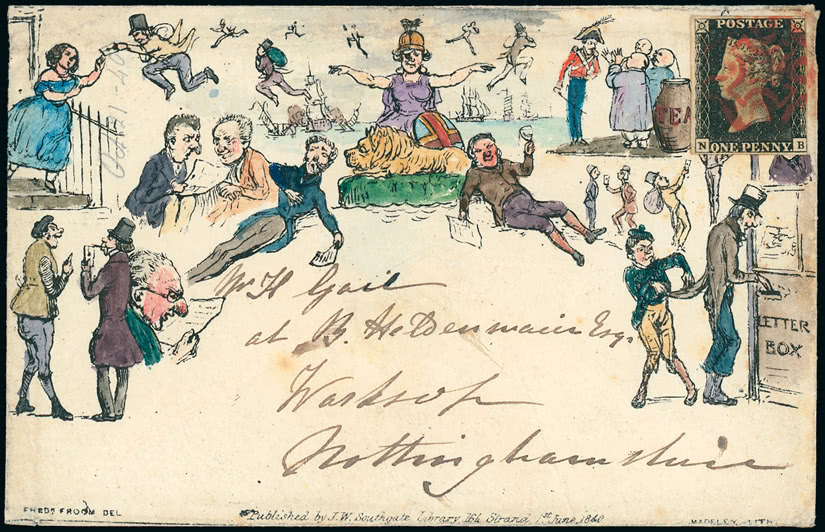 POSTAGE
N ONE PENNY B
TEA
LETTER
BOX
Mr H Gail
at B. Heldenmaier Esq.
Worksop
Nottinghamshire
FREDK FROOM DEL
Published by J.W. Southgate Library, 164 Strand, 1st June, 1840
MADELEY, LITH.